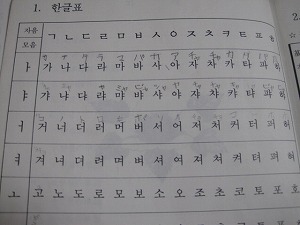 1. 한글표
자음 ㄱ ㄴ ㄷ ㄹ ㅁ ㅂ ㅅ ㅇ ㅈ ㅊ ㅋ ㅌ ㅍ ㅎ
모음
ㅏ 가 나 다 라 마 바 사 아 자 차 카 타 파 하
ㅑ 갸 냐 댜 랴 먀 뱌 샤 야 쟈 챠 캬 탸 퍄 햐
ㅓ 거 너 더 러 머 버 서 어 저 처 커 터 퍼 허
ㅕ 겨 녀 뎌 려 며 벼 셔 여 져 쳐 켜 텨 펴 혀
ㅗ 고 노 도 로 모 보 소 오 조 초 코 토 포 호